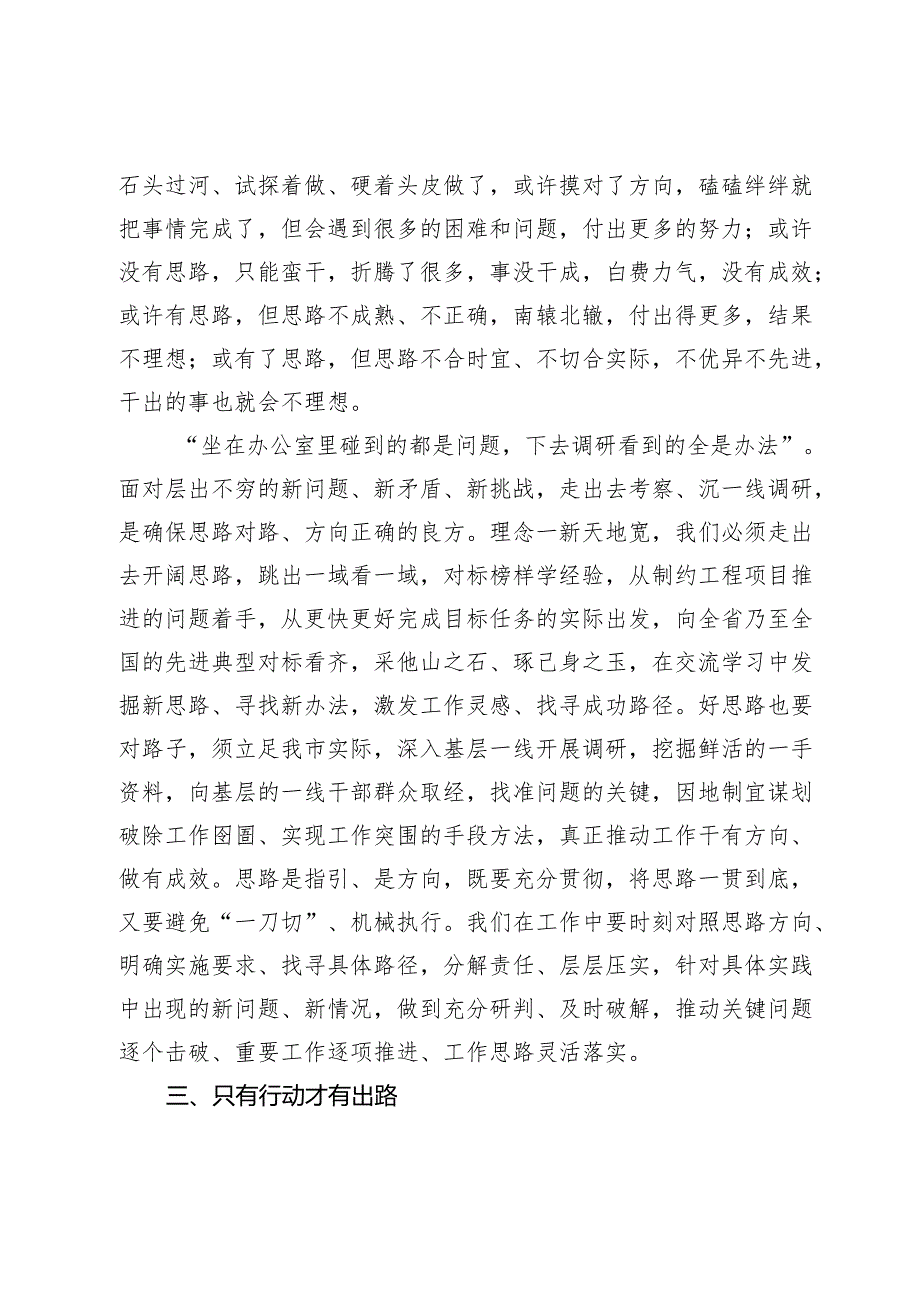 石头过河、试探着做、硬着头皮做了，或许摸对了方向，磕磕绊绊就
把事情完成了，但会遇到很多的困难和问题，付出更多的努力；或许
没有思路，只能蛮干，折腾了很多，事没干成，白费力气，没有成效；
或许有思路，但思路不成熟、不正确，南辕北辙，付出得更多，结果
不理想；或有了思路，但思路不合时宜、不切合实际，不优异不先进，
干出的事也就会不理想。
“坐在办公室里碰到的都是问题，下去调研看到的全是办法”。
面对层出不穷的新问题、新矛盾、新挑战，走出去考察、沉一线调研，
是确保思路对路、方向正确的良方。理念一新天地宽，我们必须走出
去开阔思路，跳出一域看一域，对标榜样学经验，从制约工程项目推
进的问题着手，从更快更好完成目标任务的实际出发，向全省乃至全
国的先进典型对标看齐，采他山之石、琢己身之玉，在交流学习中发
掘新思路、寻找新办法，激发工作灵感、找寻成功路径。好思路也要
对路子，须立足我市实际，深入基层一线开展调研，挖掘鲜活的一手
资料，向基层的一线干部群众取经，找准问题的关键，因地制宜谋划
破除工作囹圄、实现工作突围的手段方法，真正推动工作干有方向、
做有成效。思路是指引、是方向，既要充分贯彻，将思路一贯到底，
又要避免“一刀切”、机械执行。我们在工作中要时刻对照思路方向、
明确实施要求、找寻具体路径，分解责任、层层压实，针对具体实践
中出现的新问题、新情况，做到充分研判、及时破解，推动关键问题
逐个击破、重要工作逐项推进、工作思路灵活落实。
三、只有行动才有出路